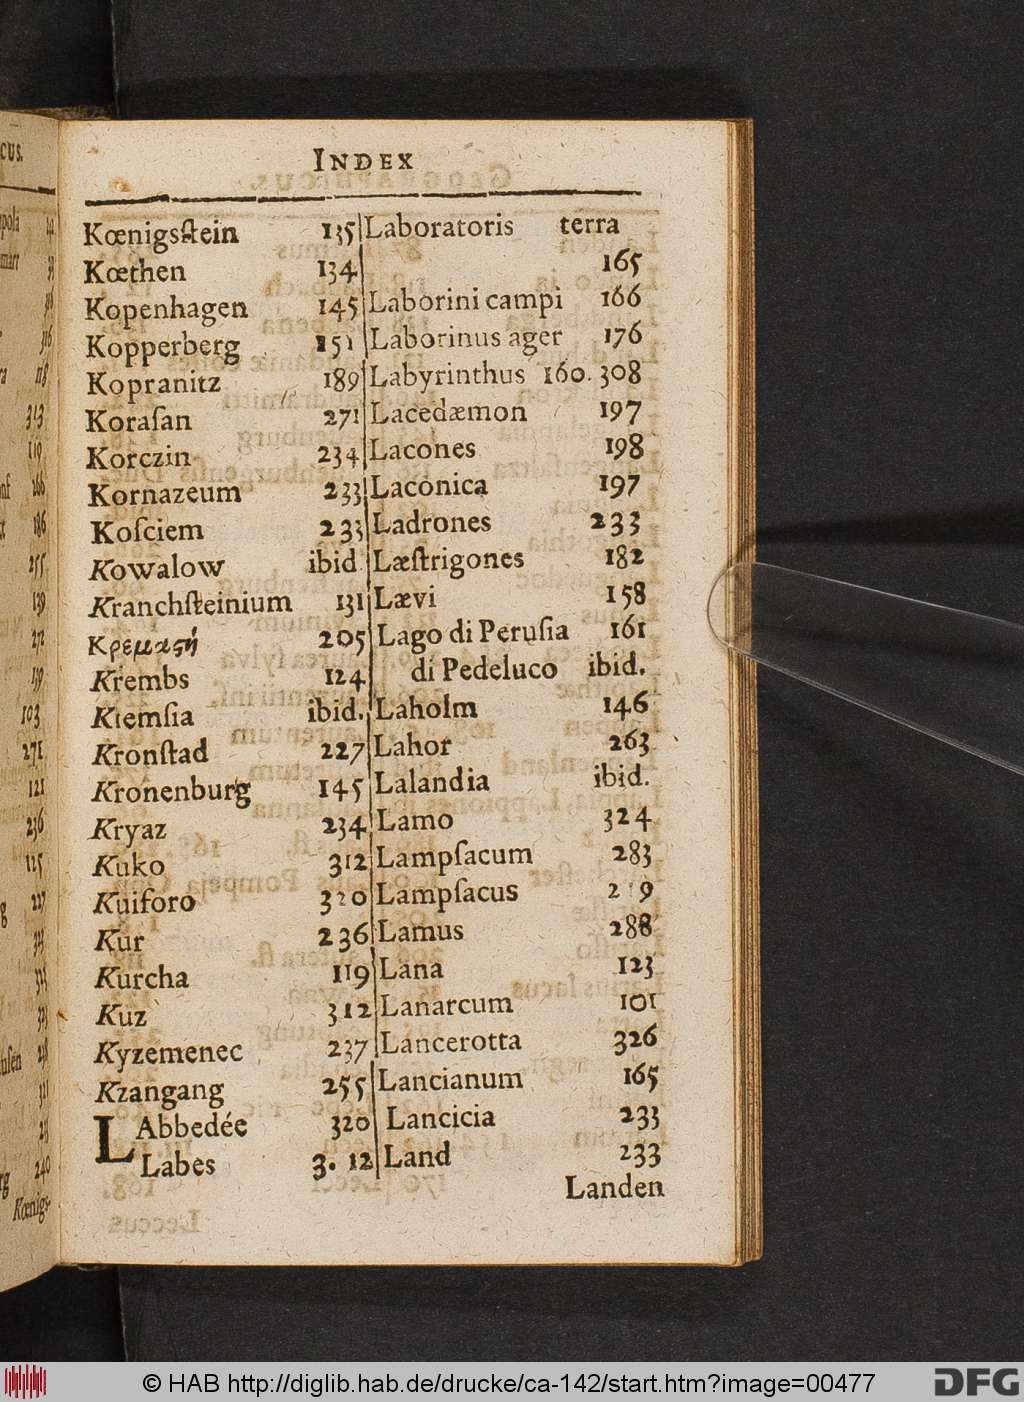 INDEX
Kœnigsſtein 135
Kœthen 134
Kopenhagen 145
Kopperberg 151
Kopranitz 189
Koraſan 271
Korczin 234
Kornazeum 233
Koſciem 233
Kowalow ibid
Kranchſteinium 131
Κρεμαςή 205
Krembs 124
Kremſia ibid.
Kronſtad 227
Kronenburg 145
Kryaz 234
Kuko 312
Kuiforo 320
Kur 236
Kurcha 119
Kuz 312
Kyzemenec 237
Kzangang 255
LAbbedée 320
Labes 3. 12
Laboratoris terra
165
Laborini campi 166
Laborinus ager 176
Labyrinthus 160. 308
Lacedæmon 197
Lacones 198
Laconica 197
Ladrones 233
Læſtrigones 182
Lævi 158
Lago di Peruſia 161
di Pedeluco ibid.
Laholm 146
Lahor 263
Lalandia ibid.
Lamo 324
Lampſacum 283
Lampſacus
Lamus 288
Lana 123
Lanarcum 101
Lancerotta 326
Lancianum 165
Lancicia 233
Land 233
Landen
© HAB http://diglib.hab.de/drucke/ca-142/start.htm?image=00477
DFG